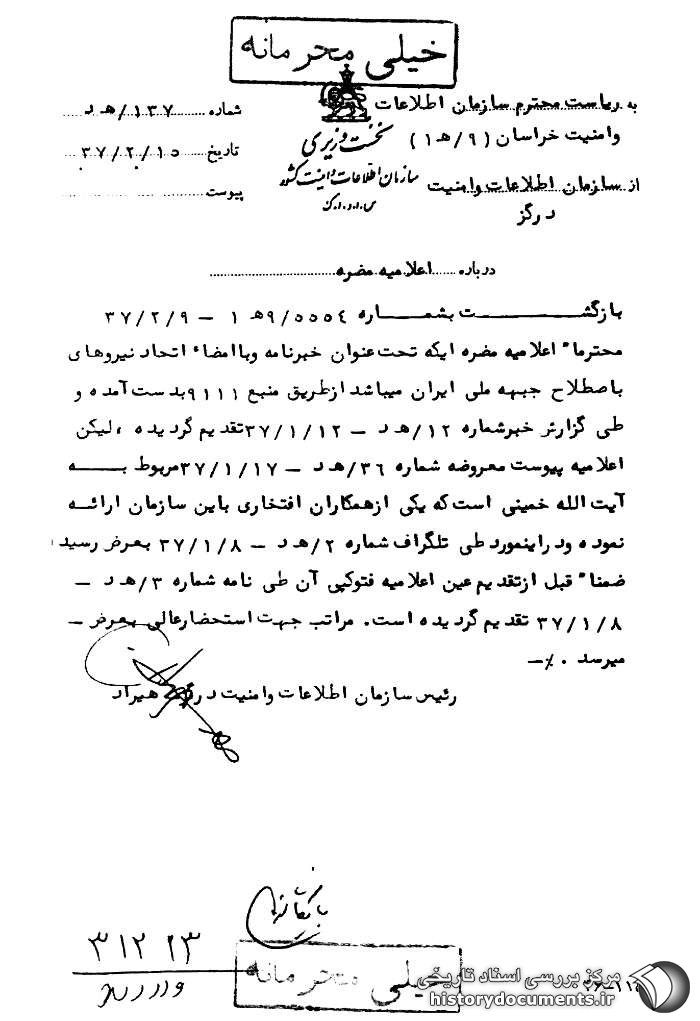 خیلی محرمانه
به ریاست محترم سازمان اطلاعات
وامنیت خراسان (۹/هـ۱)
از سازمان اطلاعات وامنیت
درگز
نخست وزیری
سازمان اطلاعات و امنیت کشور
س.ا.و.ا.ک
شماره ۱۳۷/هـ د
تاریخ ۳۷/۲/۱۵
پیوست
درباره اعلامیه مضره
بازگشت بشماره ۹/۵۵۵۴هـ ۱ – ۳۷/۲/۹
محترما" اعلامیه مضره ایکه تحت عنوان خبرنامه وباامضاء اتحاد نیروهای
باصطلاح جبهه ملی ایران میباشد ازطریق منبع ۹۱۱۱ بدست آمده و
طی گزارش خبرشماره ۱۲/هـ د – ۳۷/۱/۱۲ تقدیم گردیده ، لیکن
اعلامیه پیوست معروضه شماره ۳۶/هـ د – ۳۷/۱/۱۷ مربوط به
آیت الله خمینی است که یکی ازهمکاران افتخاری باین سازمان ارائه
نموده ودراینمورد طی تلگراف شماره ۲/هـ د – ۳۷/۱/۸ بعرض رسید
ضمنا" قبل ازتقدیم عین اعلامیه فتوکپی آن طی نامه شماره ۳/هـ د –
۳۷/۱/۸ تقدیم گردیده است. مراتب جهت استحضارعالی بعرض –
میرسد .٪–
رئیس سازمان اطلاعات وامنیت درگز هیراد
بایگانی
۳۱۲ ۱۳
خیلی محرمانه
مرکز بررسی اسناد تاریخی
historydocuments.ir